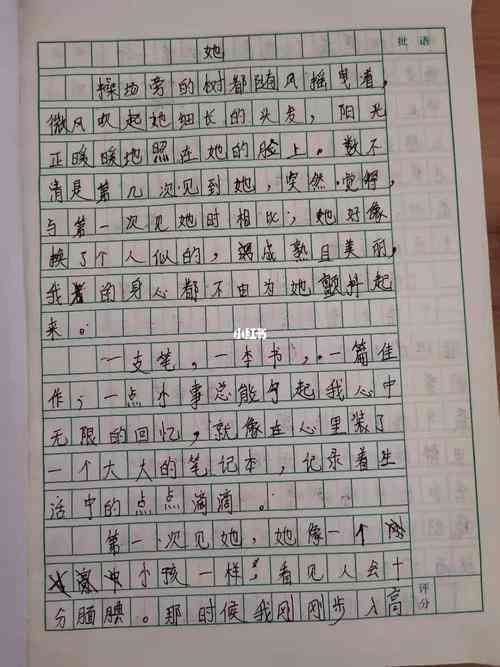 批语
她
操场旁的树都随风摇曳着，
微风吹起她细长的头发，阳光
正暖暖地照在她的脸上。数不
清是第几次见到她，突然觉得，
与第一次见她时相比，她好像
换了个人似的，成熟且美丽，
我的身心都不由为她颤抖起
来。
小红书
一支笔，一本书，一篇佳
作，一点小事总能勾起我心中
无限的回忆，就像在心里装了
一个大大的笔记本，记录着生
活中的点点滴滴。
第一次见她，她像一个
小孩一样，看见人会十
分腼腆。那时候我刚刚步入高
评分